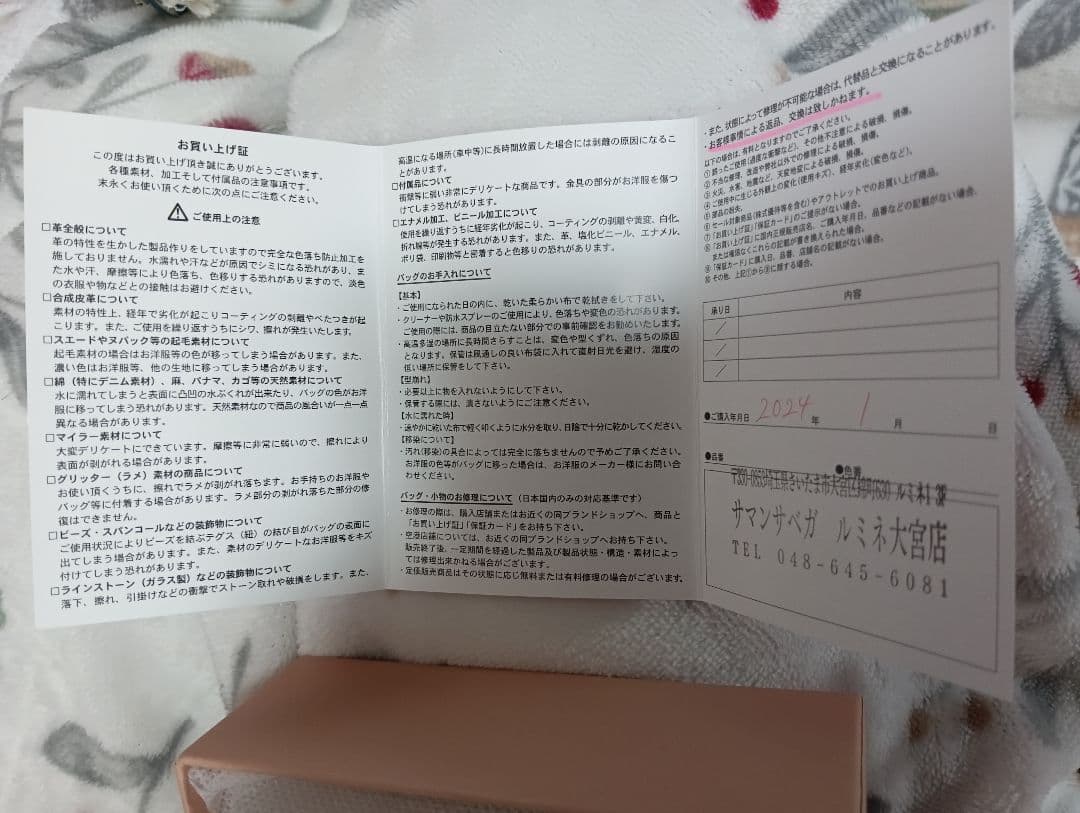 お買い上げ証
この度はお買い上げ頂き誠にありがとうございます。
各種素材、加工そして付属品の注意事項です。
末永くお使い頂くために次の点にご注意ください。
⚠ ご使用上の注意
□革全般について
革の特性を生かした製品作りをしていますので完全な色落ち防止加工を
施しておりません。水濡れや汗などが原因でシミになる恐れがあり、ま
た水や汗、摩擦等により色落ち、色移りする恐れがありますので、淡色
の衣服や物などとの接触はお避けください。
□合成皮革について
素材の特性上、経年で劣化が起こりコーティングの剥離やべたつきが起
こります。また、ご使用を繰り返すうちにシワ、擦れが発生いたします。
□スエードやヌバック等の起毛素材について
起毛素材の場合はお洋服等の色が移ってしまう場合があります。また、
濃い色はお洋服等、他の生地に移ってしまう場合があります。
□綿(特にデニム素材)、麻、パナマ、カゴ等の天然素材について
水に濡れてしまうと表面に凸凹の水ぶくれが出来たり、バッグの色がお洋
服に移ってしまう恐れがあります。天然素材なので商品の風合いが一点一点
異なる場合があります。
□マイラー素材について
大変デリケートにできています。摩擦等に非常に弱いので、擦れにより
表面が剥がれる場合があります。
□グリッター(ラメ)素材の商品について
お使い頂くうちに、擦れでラメが剥がれ落ちます。お手持ちのお洋服や
バッグ等に付着する場合があります。ラメ部分の剥がれ落ちた部分の修
復はできません。
□ビーズ・スパンコールなどの装飾物について
ご使用状況によりビーズを結ぶテグス(紐)の結び目がバッグの表面に
出てしまう場合があります。また、素材のデリケートなお洋服等をキズ
付けてしまう恐れがあります。
□ラインストーン(ガラス製)などの装飾物について
落下、擦れ、引掛けなどの衝撃でストーン取れや破損をします。また、
高温になる場所(車中等)に長時間放置した場合には剥離の原因になるこ
とがあります。
□付属品について
衝撃等に弱い非常にデリケートな商品です。金具の部分がお洋服を傷つ
けてしまう恐れがあります。
□エナメル加工、ビニール加工について
使用を繰り返すうちに経年劣化が起こり、コーティングの剥離や黄変、白化、
折れ線等が発生する恐れがあります。また、革、塩化ビニール、エナメル、
ポリ袋、印刷物等と密着すると色移りの恐れがあります。
バッグのお手入れについて
【基本】
・ご使用になられた日の内に、乾いた柔らかい布で乾拭きをして下さい。
・クリーナーや防水スプレーのご使用により、色落ちや変色の恐れがあります。
ご使用の際には、商品の目立たない部分での事前確認をお勧めいたします。
・高温多湿の場所に長時間さらすことは、変色や型くずれ、色落ちの原因
となります。保管は風通しの良い布袋に入れて直射日光を避け、湿度の
低い場所に保管をして下さい。
【型崩れ】
・必要以上に物を入れないようにして下さい。
・保管する際には、潰さないようにご注意ください。
【水に濡れた時】
・速やかに乾いた布で軽く叩くように水分を取り、日陰で十分に乾かしてください。
【移染について】
・汚れ(移染)の具合によっては完全に落ちませんので予めご了承ください。
お洋服の色等がバッグに移った場合は、お洋服のメーカー様にお問い合
わせください。
バッグ・小物のお修理について(日本国内のみの対応基準です)
・お修理の際は、購入店舗またはお近くの同ブランドショップへ、商品と
「お買い上げ証」「保証カード」をお持ち下さい。
・空港店舗については、お近くの同ブランドショップへお持ち下さい。
販売終了後、一定期間を経過した製品及び製品状態・構造・素材によっ
ては修理出来かねる場合がございます。
・定価販売商品はその状態に応じ無料または有料修理の場合がございます。
・また、状態によって修理が不可能な場合は、代替品と交換になることがあります。
・お客様事情による返品、交換は致しかねます。
以下の場合は、有料となりますのでご了承ください。
①誤ったご使用(過度な衝撃など)、その他不注意による破損、損傷。
②不当な修理、改造や弊社以外での修理による破損、損傷。
③火災、水害、地震など、天変地変による破損、損傷。
④ご使用中に生じる外観上の変化(使用キズ)、経年劣化(変色など)。
⑤部品の紛失。
⑥セール対象商品(株式優待等を含む)やアウトレットでのお買い上げ商品。
⑦「お買い上げ証」「保証カード」のご提示がない場合。
⑧「お買い上げ証」に国内正規販売店名、ご購入年月日、品番などの記載がない場合、
または確認なくこれらの記載が書き換えられた場合。
⑨「保証カード」に購入日、品番、店舗名の記載がない場合。
⑩その他、上記①から⑨に類する場合。
承り日 内容
/
/
/
●ご購入年月日 2024 年 1 月 日
●品番 ●色番
サマンサベガ ルミネ大宮店
TEL 048-645-6081